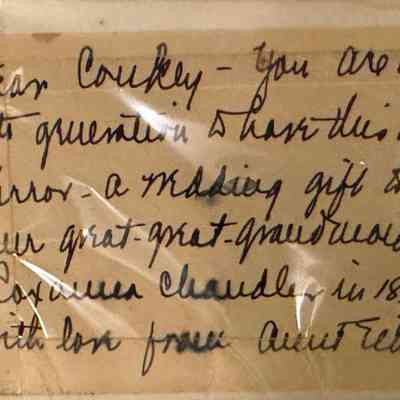 ear Conkey - You are
th generation to have this
irror - a wedding gift to
our great-great-grandmo
Roxanna Chandler in 18
with love from Aunt